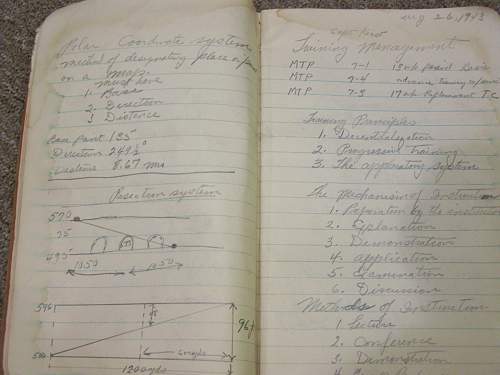 Polar Coordinate system
method of designating place or
on a map.
must have
1. Base
2. Direction
3. Distance
Base Point 135
Direction 249½°
Distance 8.67 mi
Position system
570
75
495
1050
1050
596
500
600yds
1200yds
96
Aug 26, 1943
Training Management
MTP 7-1 13wk
MTP 7-4
MTP 7-3 17wk Replacement T.C.
Training Principles
1. Decentralization
2. Progressive Training
3. The applicatory system
The Mechanism of Instruction
1. Preparation by the instructor
2. Explanation
3. Demonstration
4. application
5. Examination
6. Discussion
Methods of Instruction
1. Lecture
2. Conference
3. Demonstration
4.